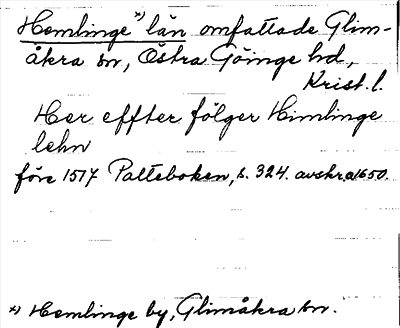 Hemlinge *) län omfattade Glim-
åkra sn, Östra Göinge hd,
Krist. l.
Her effter fölger Himlinge
lehn
före 1517 Palteboken, s. 324. avskr. a 1650.
*) Hemlinge by, Glimåkra sn.